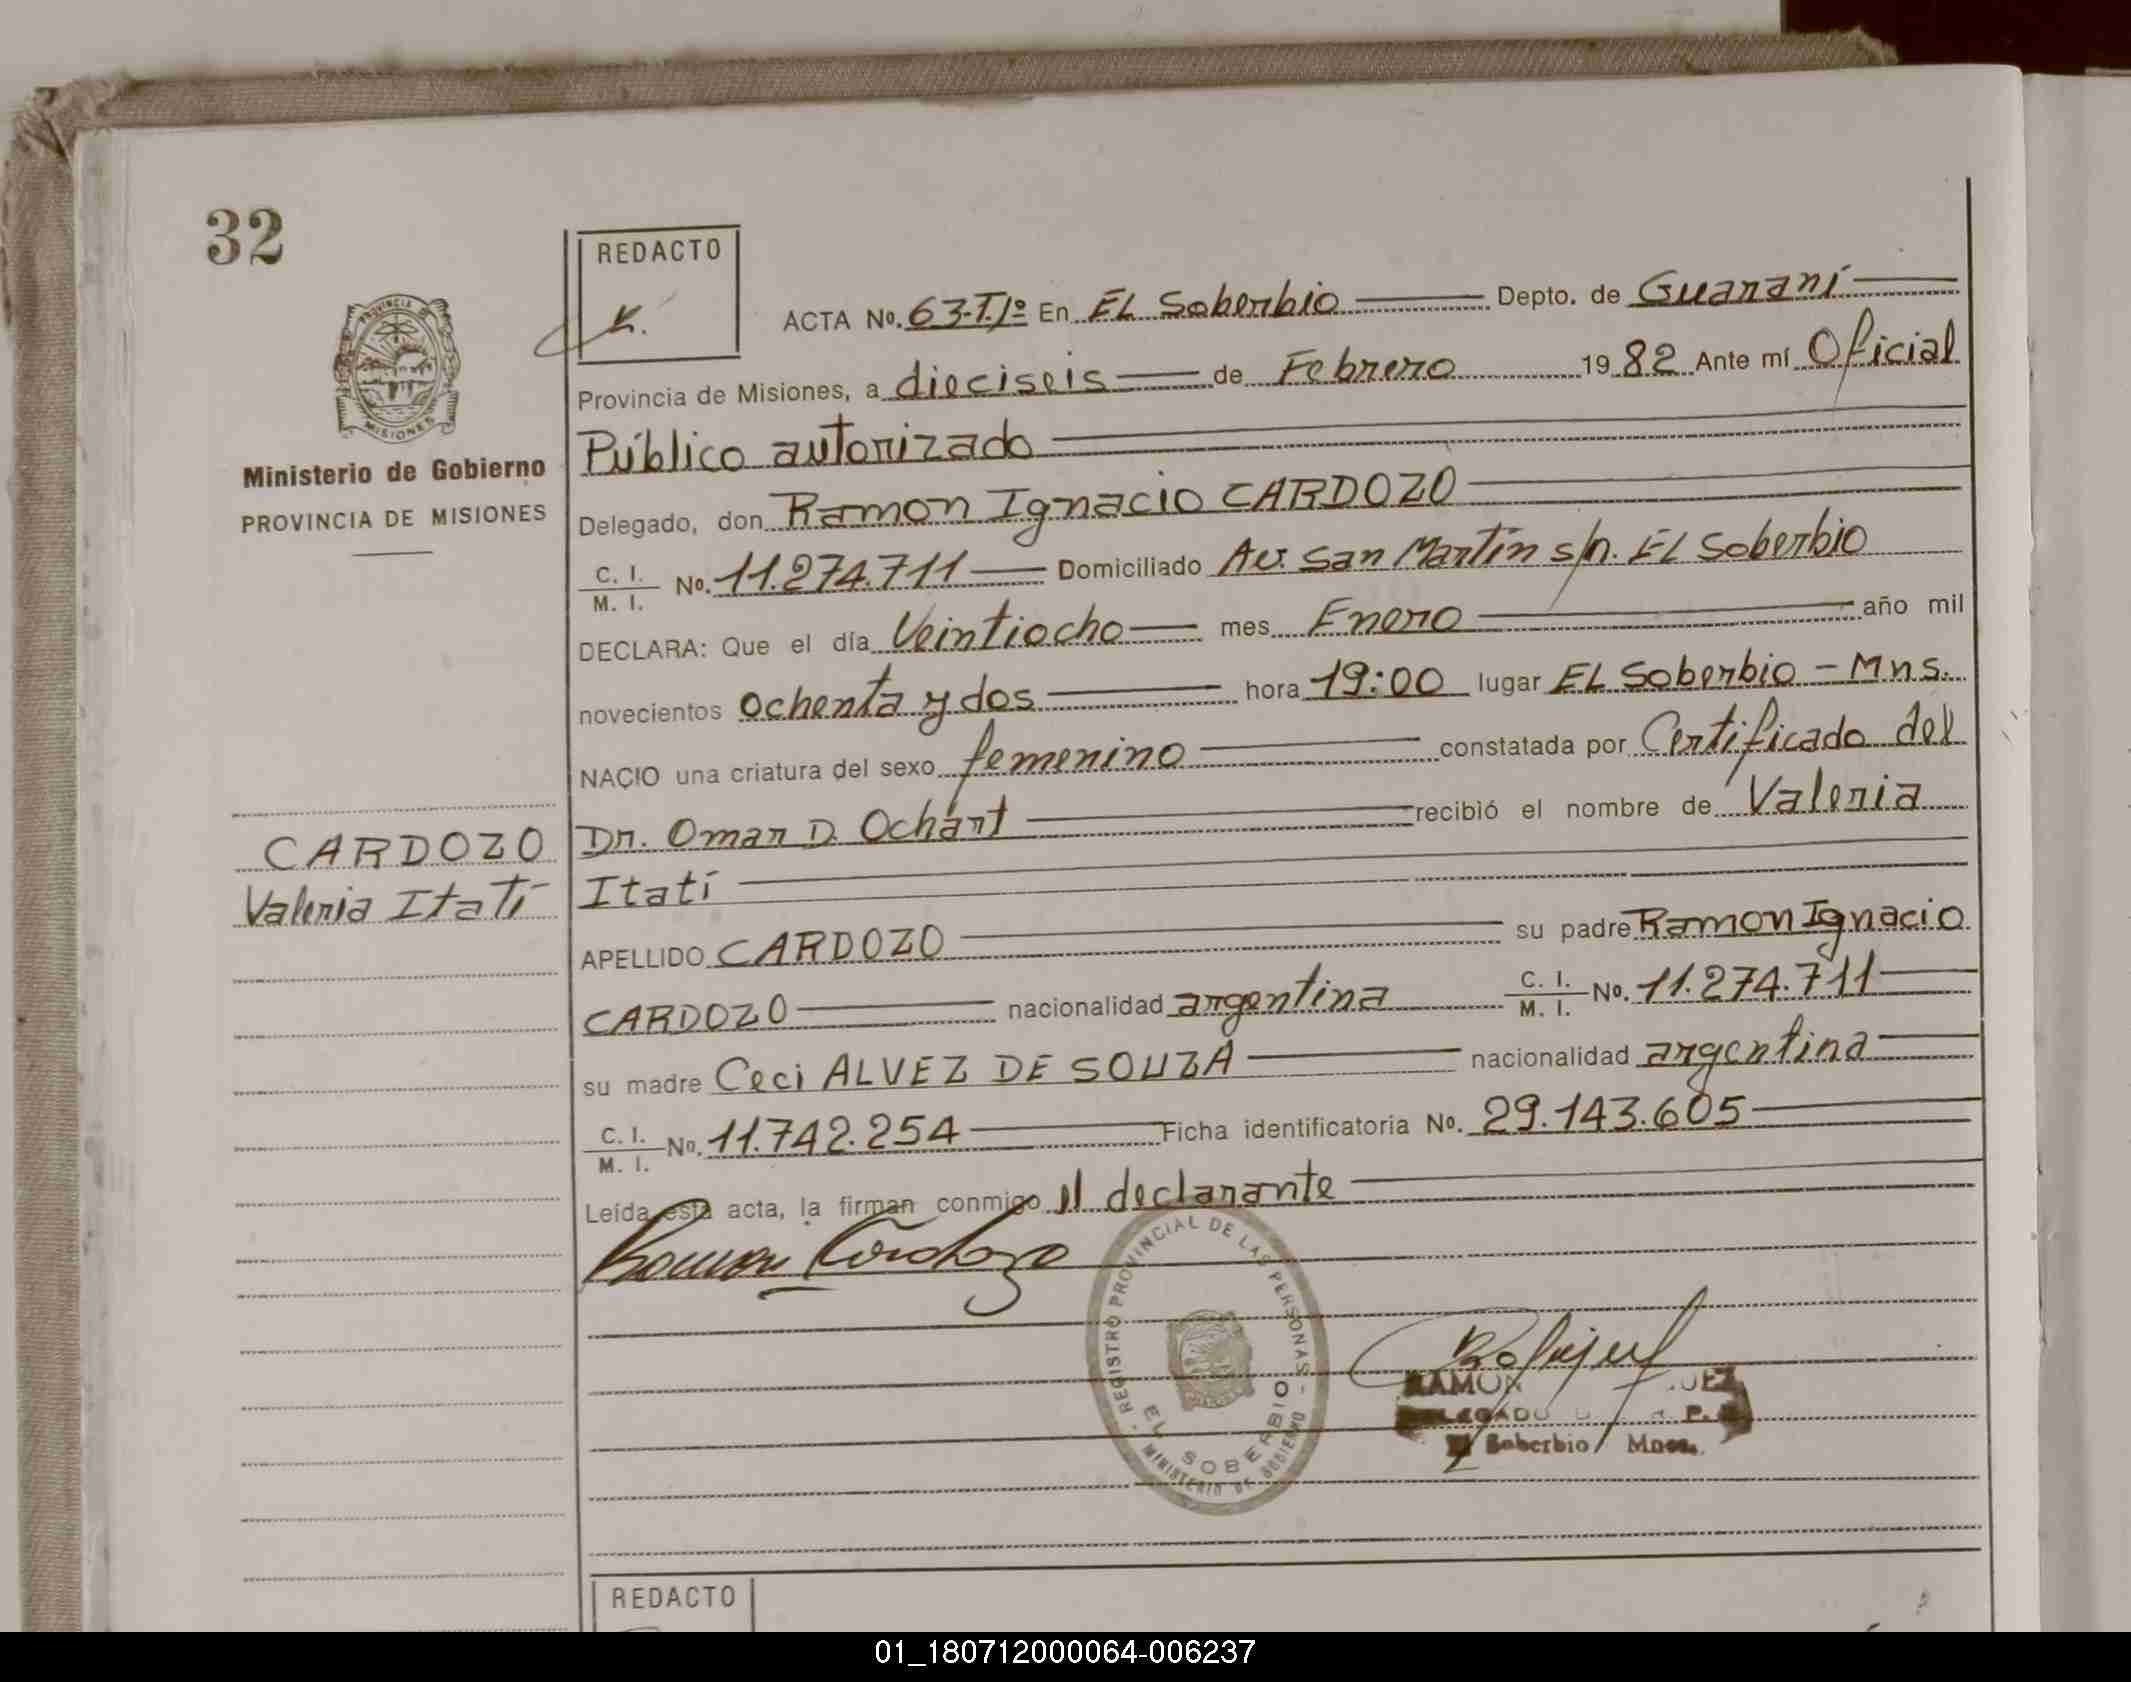 32
REDACTO
PROVINCIA DE
MISIONES
Ministerio de Gobierno
PROVINCIA DE MISIONES
ACTA No. 63-T.1º En EL Soberbio Depto. de Guaraní
Provincia de Misiones, a dieciseis de Febrero 1982 Ante mí Oficial
Público autorizado
Delegado, don Ramon Ignacio CARDOZO
C. I. / M. I. No. 11.274.711 Domiciliado Av. San Martín s/n. EL Soberbio
DECLARA: Que el día Veintiocho mes Enero año mil
novecientos ochenta y dos hora 19:00 lugar EL Soberbio - Mns.
NACIO una criatura del sexo femenino constatada por Certificado del
Dr. Omar D. Ochart recibió el nombre de Valeria
Itatí
CARDOZO
Valeria Itatí
APELLIDO CARDOZO su padre Ramon Ignacio
CARDOZO nacionalidad argentina C. I. / M. I. No. 11.274.711
su madre Ceci ALVEZ DE SOUZA nacionalidad argentina
C. I. / M. I. No. 11.742.254 Ficha identificatoria No. 29.143.605
Leída esta acta, la firman conmigo el declarante
Ramon Cardozo
REGISTRO PROVINCIAL DE LAS PERSONAS - MINISTERIO DE GOBIERNO
EL SOBERBIO
RAMON
DELEGADO R. P.
El Soberbio Mnes.
REDACTO
01_180712000064-006237